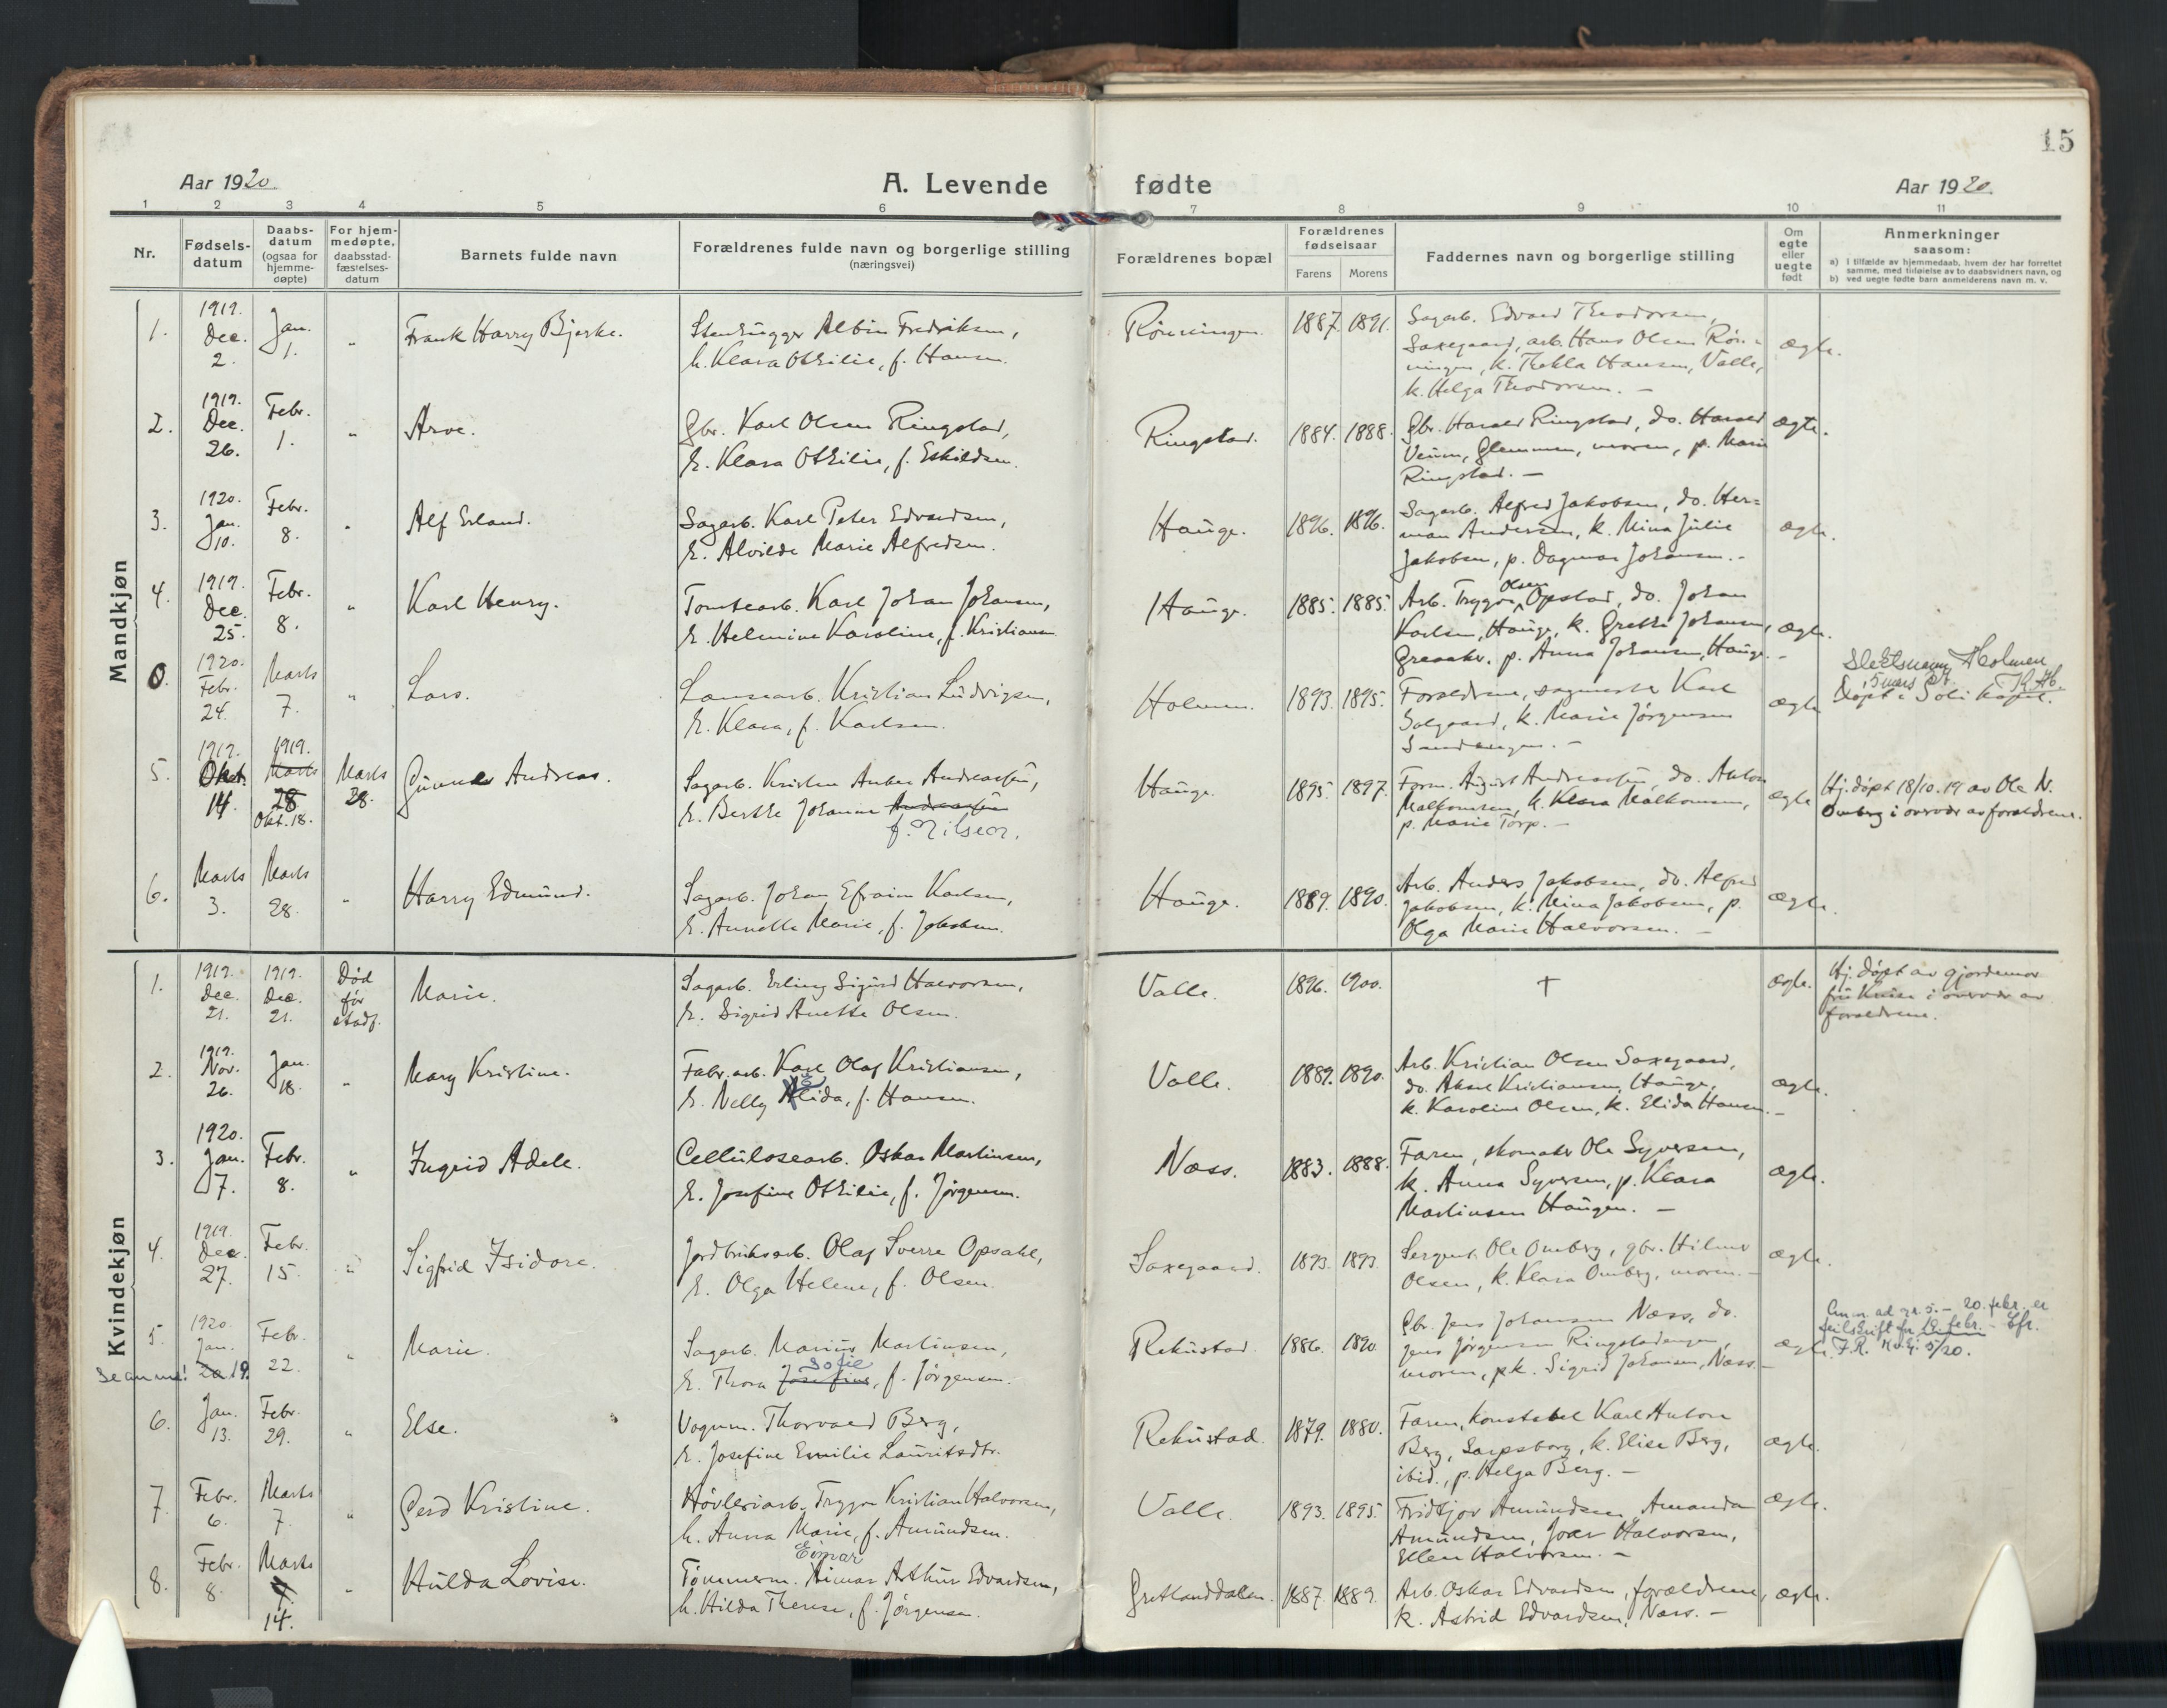 15
Aar 1920.
A. Levende fødte
Aar 1920.
1 2 3 4 5 6 7 8 9 10 11
Nr.
Fødsels-
datum
Daabs-
datum
(ogsaa for
hjemme-
døpte)
For hjem-
medøpte,
daabsstad-
fæstelses-
datum
Barnets fulde navn
Forældrenes fulde navn og borgerlige stilling
(næringsvei)
Forældrenes bopæl
Forældrenes
fødselsaar
Farens Morens
Faddernes navn og borgerlige stilling
Om
egte
eller
uegte
født
Anmerkninger
saasom:
a) i tilfælde av hjemmedaab, hvem der har forrettet
samme, med tilføielse av to daabsvidners navn, og
b) ved uegte fødte barn anmelderens navn m. v.
Mandkjøn
1.
1919.
Dec.
2.
Jan.
1.
"
Frank Harry Bjerke.
Stenhugger Albin Fredriksen,
h. Klara Othilie, f. Hansen.
Rønningen.
1887. 1891.
Sagarb. Edvard Theodorsen,
Saxegaard, arb. Hans Olsen Røn-
ningen, k. Thekla Hansen, Valle,
k. Helga Theodorsen. -
ægte.
2.
1919.
Dec.
26.
Febr.
1.
"
Arve.
Gbr. Karl Olsen Ringstad,
h. Klara Othilie, f. Eskildsen.
Ringstad.
1884. 1888.
Gbr. Harald Ringstad, do. Harald
Veum, Glemmen, moren, p. Marie
Ringstad. -
ægte.
3.
1920.
Jan.
10.
Febr.
8.
"
Alf Erland.
Sagarb. Karl Peter Edvardsen,
h. Alvilde Marie Alfredsen.
Hauge.
1896. 1896.
Sagarb. Alfred Jakobsen, do. Her-
man Andersen, k. Mina Julie
Jakobsen, p. Dagmar Johansen. -
ægte.
4.
1919.
Dec.
25.
Febr.
8.
"
Karl Henry.
Tomtearb. Karl Johan Johansen,
h. Helmine Karoline, f. Kristiansen
Hauge.
1885. 1885.
Olsen
Arb. Trygve Opstad, do. Johan
Karlsen, Hauge, k. Grethe Johansen,
Greaaker, p. Anna Johansen, Hauge. -
ægte.
0.
1920.
Febr.
24.
Marts
7.
"
Lars.
Lansearb. Kristian Ludvigsen,
h. Klara, f. Karlsen.
Holmen.
1893. 1895.
Forældrene, sagmester Karl
Solgaard, k. Marie Jörgensen
Sandengen. -
ægte
Slektsnavn Holmen
15 mars 27. K.H.
Døpt i Soli kapel.
5.
1919.
Okt.
14.
1919.
Marts
28
Okt. 18.
Marts
28.
Gunnar Andreas.
Sagarb. Kristen Anker Andreassen,
h. Berthe Johanne Andreassen
f. Nilsen.
Hauge.
1895. 1897.
Form. August Andreassen, do. Anton
Malkomsen, k. Klara Malkomsen,
p. Marie Torp. -
ægte
Hj. døpt 18/10. 19 av Ole N.
Omberg i overvær av forældrene.
6.
Marts
3.
Marts
28.
"
Harry Edmund.
Sagarb. Johan Efraim Karlsen,
h. Annette Marie, f. Jakobsen.
Hauge.
1889. 1890.
Arb. Anders Jakobsen, do. Alfred
Jakobsen, k. Mina Jakobsen, p.
Olga Marie Halvorsen. -
ægte.
Kvindekjøn
1.
1919.
Dec.
21.
1919.
Dec.
21.
Død
før
stadf.
Marie.
Sagarb. Erling Sigurd Halvorsen,
h. Sigrid Anette Olsen.
Valle.
1896. 1900.
†
ægte.
Hj. døpt av gjordemor
fru Knise i overvær av
forældrene.
2.
1919.
Nov.
26.
Jan.
18.
"
Mary Kristine.
Fabr. arb. Karl Olaf Kristiansen,
h. Nelly Alida, f. Hansen.
Valle.
1889. 1890.
Arb. Kristian Olsen Saxegaard,
do. Aksel Kristiansen, Hauge,
k. Karoline Olsen, k. Elida Hansen. -
ægte.
3.
1920.
Jan.
7.
Febr.
8.
"
Ingrid Adele.
Cellulosearb. Oskar Martinsen,
h. Josefine Othilie, f. Jørgensen.
Næss.
1883. 1888.
Faren, skomaker Ole Syversen,
k. Anna Syversen, p. Klara
Martinsen Haugen. -
ægte.
4.
1919.
Dec.
27.
Febr.
15.
"
Sigfrid Isidore.
Jordbruksarb. Olaf Sverre Opsahl,
h. Olga Helene, f. Olsen.
Saxegaard.
1893. 1893.
Sergent Ole Omberg, gbr. Hilmar
Olsen, k. Klara Omberg, moren. -
ægte.
5.
1920.
Jan.
20 19.
Se anm.!
Febr.
22.
"
Marie.
Sagarb. Marius Martinsen,
Sofie
h. Thora Josefine, f. Jørgensen.
Rekustad.
1886. 1890.
Gbr. Jens Johansen Næss, do.
Jens Jørgensen Ringstadengen,
moren, pk. Sigrid Johansen, Næss. -
ægte.
Anm. ad nr. 5. - 20. febr. er
feilskrift for 19. febr. - Cfr.
F.R. 5/20.
6.
Jan.
13.
Febr.
29.
"
Else.
Vognm. Thorvald Berg,
h. Josefine Emilie Lauritsdtr.
Rekustad.
1879. 1880.
Faren, konstabel Karl Anton
Berg, Sarpsborg, k. Elise Berg,
ibid., p. Helga Berg. -
ægte.
7.
Febr.
6.
Marts
7.
"
Gerd Kristine.
Høvleriarb. Trygve Kristian Halvorsen,
h. Anna Marie, f. Amundsen.
Valle.
1893. 1895.
Fridtjov Amundsen, Amanda
Amundsen, Joar Halvorsen,
Ellen Halvorsen. -
ægte.
8.
Febr.
8.
Marts
7.
14.
"
Hulda Lovise.
Einar
Tømmerm. Aimar Arthur Edvardsen,
h. Hilda Therese, f. Jørgensen.
Gretlanddalen.
1887. 1889.
Arb. Oskar Edvardsen, forældrene,
k. Astrid Edvardsen, Næss. -
ægte.